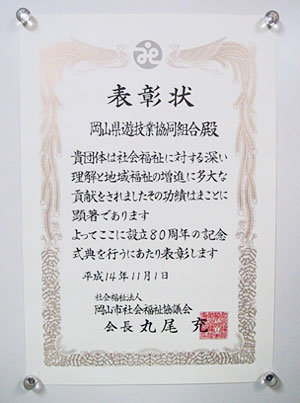 表彰状
岡山県遊技業協同組合殿
貴団体は社会福祉に対する深い
理解と地域福祉の増進に多大な
貢献をされましたその功績はまことに
顕著であります
よってここに設立80周年の記念
式典を行うにあたり表彰します
平成14年11月1日
社会福祉法人
岡山市社会福祉協議会
会長 丸尾 充